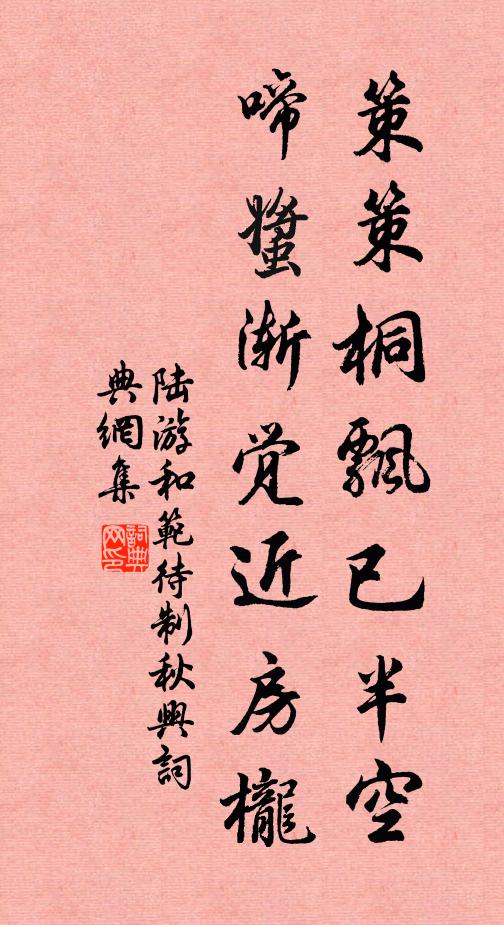 策策桐飄已半空
啼螿漸覚近房櫳
陆游和範待制秋興詞
典網集
詞典
网印